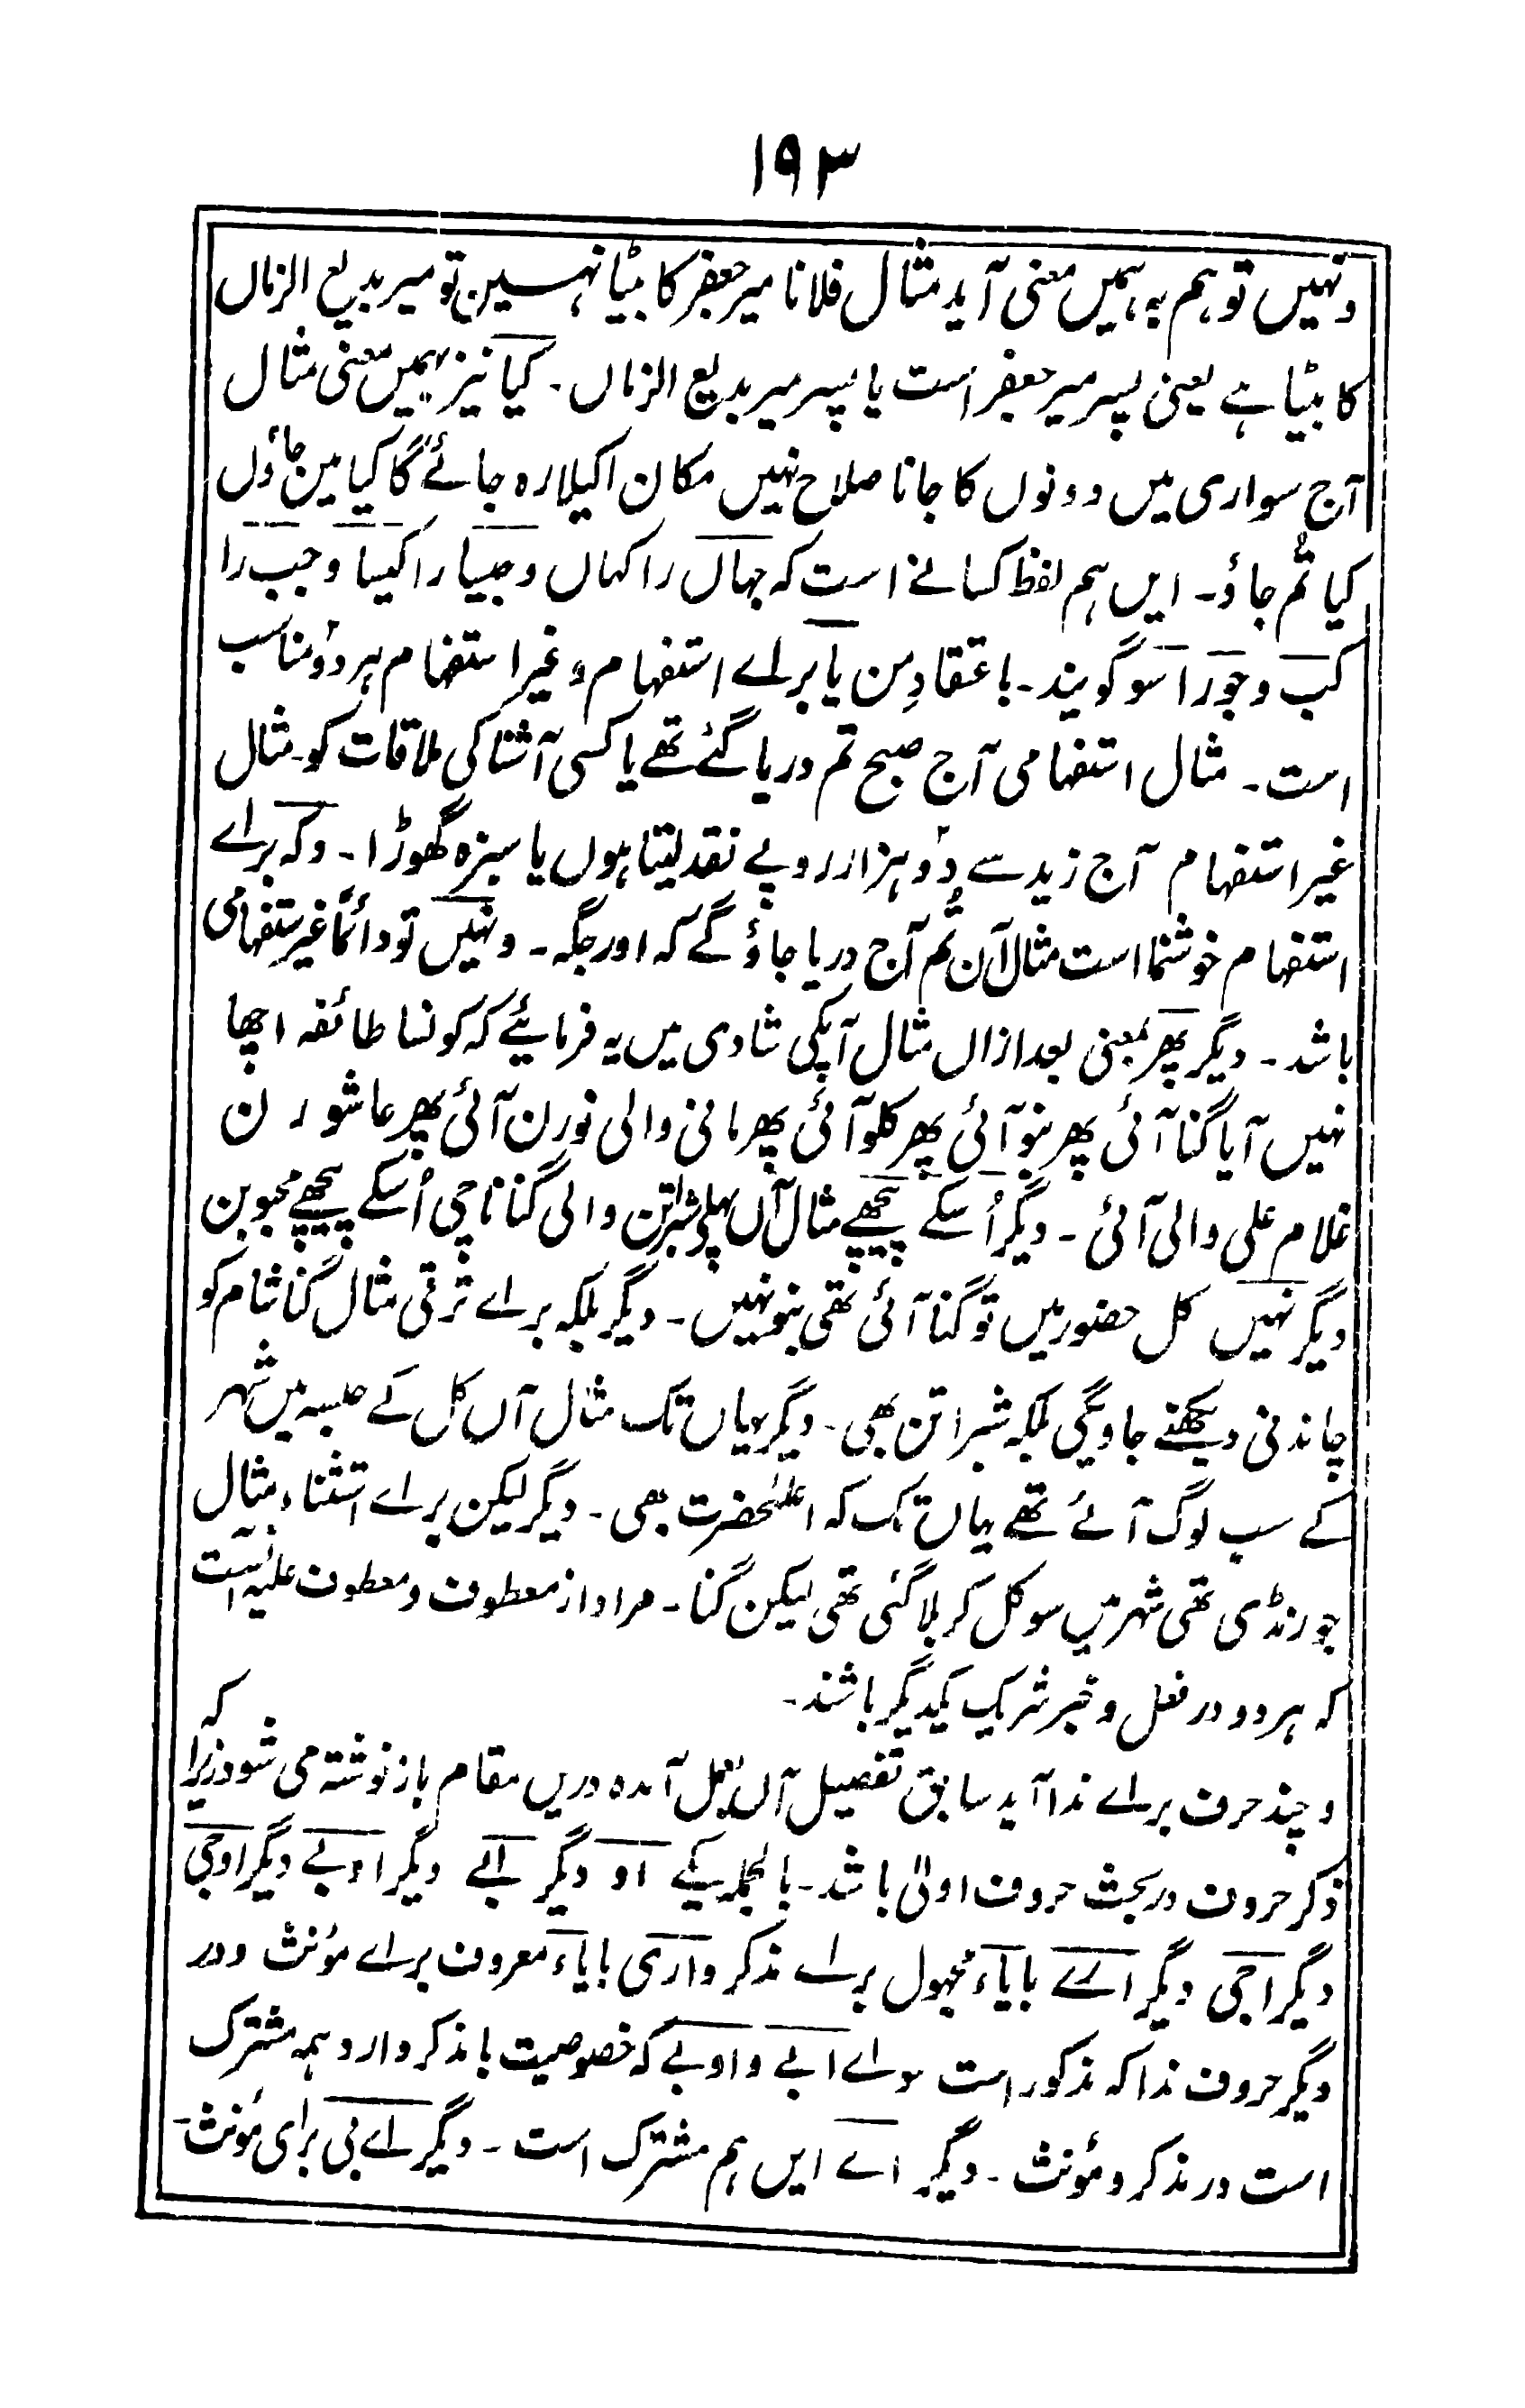 ۱۹۳
و نہیں تو ہم بہ ہمیں معنی آید مثال فلانا میر جعفر کا بیٹا نہیں تو میر بدیع الزماں
کا بیٹا ہے یعنی پسر میر جعفر است یا پسر میر بدیع الزماں۔ کیا نیز بہمیں معنی مثال
آج سواری میں دونوں کا جانا صلاح نہیں مکان اکیلا رہ جائے گا کیا میں جاؤں
کیا تُم جاؤ۔ ایں ہم لفظ کسانے است کہ جہاں را کہاں و جیسا را کیسا و جب را
کب و جو را سو گویند۔ باعتقادِ من یا برائے استفہام و غیر استفہام ہر دو مناسب
است۔ مثال استفہامی آج صبح تم دریا گئے تھے یا کسی آشنا کی ملاقات کو۔ مثال
غیر استفہام آج زید سے دو ہزار روپے نقد لیتا ہوں یا سبزہ گھوڑا۔ و کہ برائے
استفہام خوشنما است مثال آن تُم آج دریا جاؤ گے کہ اور جگہ۔ و نہیں تو دائماً غیر ستفہامی
باشد۔ دیگر پھر بمعنی بعد ازاں مثال آپکی شادی میں یہ فرمائیے کہ کونسا طائفہ اچھا
نہیں آیا گنا آئی پھر بنو آئی پھر کلو آئی پھر مانی والی نورن آئی پھر عاشورن
غلام علی والی آئی۔ دیگر اُسکے پیچھے مثال آں پہلی شبراتن والی گنا ناچی اُسکے پیچھے محبوبن
دیگر نہیں کل حضور میں تو گنا آئی تھی بنو نہیں۔ دیگر بلکہ برائے ترقی مثال گنا شام کو
چاندنی دیکھنے جاویگی بلکہ شبراتن بھی۔ دیگر یہاں تک مثال آں کل کے جلسہ میں شہر
کے سب لوگ آئے تھے یہاں تک کہ اعلیٰحضرت بھی۔ دیگر لیکن برائے استثناء مثال
جو رنڈی تھی شہر میں سو کل کربلا گئی تھی لیکن گنا۔ مراد از معطوف و معطوف علیہ آنست
کہ ہر دو در فعل و خبر شریک یکدیگر باشند۔
و چند حرف برائے ندا آید سابق تفصیل آں بعمل آمدہ دریں مقام باز نوشتہ می شود زیرا کہ
ذکر حروف در بحث حروف اولیٰ باشد۔ بالجملہ یکے او دیگر ابے دیگر اوبے دیگر اوجی
دیگر اجی دیگر ارے بایاء مجہول برائے مذکر و اری بایاء معروف برائے مؤنث و در
دیگر حروف ندا کہ مذکور است سوائے ابے و اوبے کہ خصوصیت با مذکر دارد ہمہ مشترک
است در مذکر و مؤنث۔ دیگر اے ایں ہم مشترک است۔ دیگر اے بی برای مؤنث۔